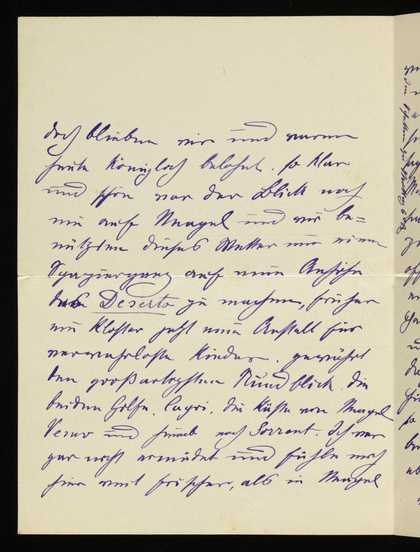 doch blieben wir und waren
heute königlich belohnt. so klar
und schön war der Blick noch
nie auf Neapel und wir be=
nützten dieses Wetter um einen
Spaziergang auf eine Anhöhe
das Deserto zu machen, früher
ein Kloster jetzt eine Anstalt für
verwahrloste Kinder. gewährt
den großartigsten Rundblick. die
beiden Golfe. Capri. die Küste von Neapel
Vesuv und hinab nach Sorrent. Ich war
gar nicht ermüdet und fühle mich
hier weit frischer, als in Neapel